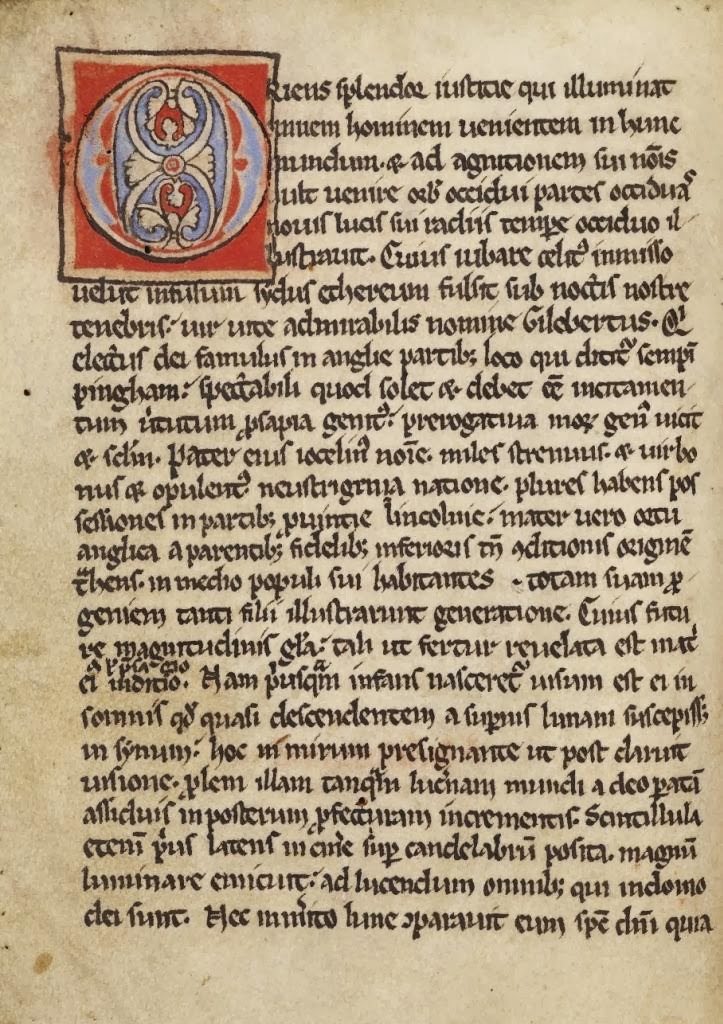 Oriens splendor iusticie qui illuminat
omnem hominem uenientem in hunc
mundum. & ad agnitionem sui nōis
uult uenire occidui partes occiduas
nouus lucis sui radiis tempe occiduo il-
lustrauit. Cuius iubare celitꝰ inmisso
uelut infusum sydus ethereum fulsit sub noctis nostre
tenebris: uir uite admirabilis nomine Gilebertus. Qi
electus dei famulus in anglie partibꝫ loco qui dicitꝰ sempi
pingham: spectabili quod solet & debet eē incitamen-
tum ꝓsapia genitꝰ: prerogatiua moꝝ genꝰ uicit
& sclm. Pater eius iocelinꝰ noīe. miles strenuus. & uir bo
nus & opulentꝰ neustrigenia natione. plures habens pos
sessiones in partibꝫ ꝓuintie lincolnie: mater uero ortu
anglica a parentibꝫ fidelibꝫ inferioris tn̄ ꝯditionis originē
t̓hens. in medio populi sui habitantes . totam suam ꝓ-
geniem tanti filii illustrarunt generatione. Cuius futu
re magnitudinis gl̄a: tali ut fertur reuelata est mat̓
ei inditio. Nam p̓usqͣm infans nascereꝉ uisum est ei in
somnis qđ quasi descendentem a supnis lunam suscepiss;
in synum: hoc nimirum presignante ut post claruit
uisione. ꝓlem illam tanqͣm luc̓nam mundi a deo ꝑatā
assiduis in posterum ꝓfecturam incrementis. Scintillula
etenī p̓us latens in cin̓e sup candelabrū posita. magnū
luminare emicuit: ad lucendum omnibꝫ qui in domo
dei sunt. Nec inm̓ito lune ꝯparauit eum spē dn̄i quia